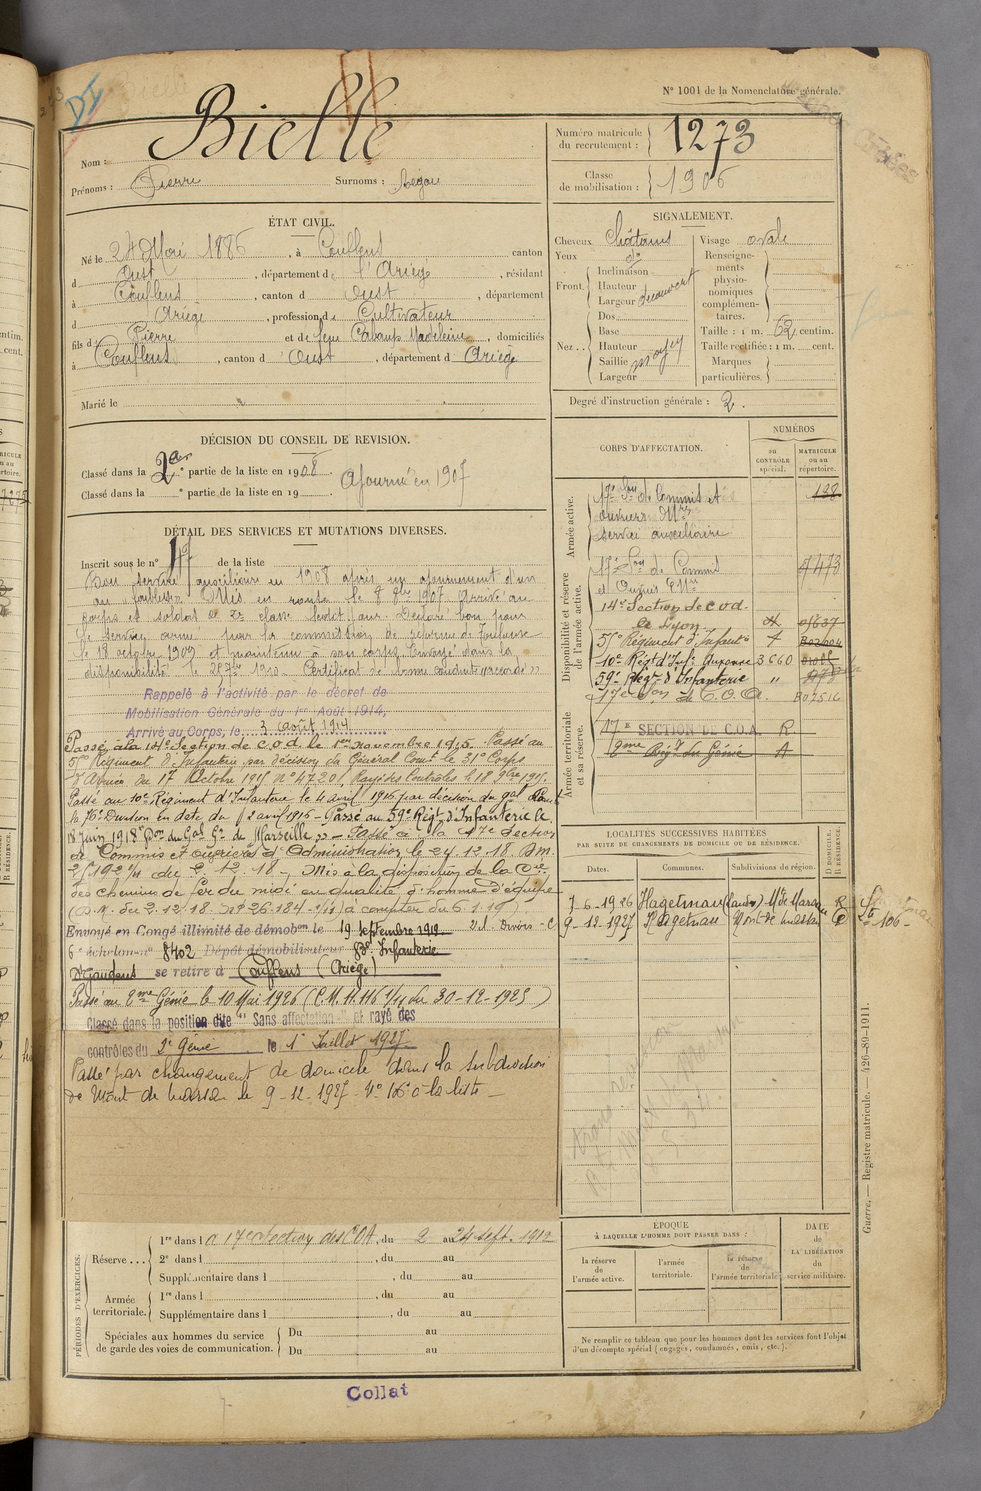 N° 1001 de la Nomenclature générale.
DI
Nom : Bielle
Prénoms : Pierre Surnoms : Segau
Numéro matricule du recrutement : 1273
Classe de mobilisation : 1906
ÉTAT CIVIL.
Né le 24 Mai 1886, à Couflens canton
d Oust, département de l'Ariège, résidant
à Couflens, canton d Oust, département
d Ariège, profession de Cultivateur
fils de Pierre et de feue Cabaup Madeleine, domiciliés
à Couflens, canton d Oust, département d Ariège
Marié le
SIGNALEMENT.
Cheveux Châtains
Yeux do
Front. Inclinaison
Hauteur
Largeur découvert
Nez.. Dos
Base
Hauteur moyen
Saillie
Largeur
Visage ovale
Renseignements physionomiques complémentaires.
Taille : 1 m. 62 centim.
Taille rectifiée : 1 m. cent.
Marques particulières.
Degré d'instruction générale : 2.
DÉCISION DU CONSEIL DE REVISION.
Classé dans la 2e partie de la liste en 1908. Ajourné en 1907
Classé dans la ° partie de la liste en 19
DÉTAIL DES SERVICES ET MUTATIONS DIVERSES.
Inscrit sous le n° 47 de la liste
Bon service auxiliaire en 1908 après un ajournement d'un
an faiblesse Mis en route le 8 8bre 1907 Arrivé au
corps et soldat de 2e classe ledit jour. Déclaré bon pour
le service armé par la commission de réforme de Toulouse
le 18 octobre 1909 et maintenu à son corps. Envoyé dans la
disponibilité le 25 7bre 1910. Certificat de bonne conduite "accordé"
Rappelé à l'activité par le décret de
Mobilisation Générale du 1er Août 1914,
Arrivé au Corps, le 3 août 1914
Passé à la 14e Section de c.o.d. le 1er novembre 1915. Passé au
5 Régiment d'Infanterie par décision du Général Comt le 31e Corps
d'Armée du 17 Octobre 1915 n° 4720/ Rayé des Contrôles le 18 9bre 1915.
Passé au 10e Régiment d'Infanterie le 4 avril 1916 par décision du gal
la 76e Division en date du 2 avril 1916 - Passé au 59e Régt d'Infanterie le
18 juin 1918 Don du Gal Gr de Marseille - Passé à la 17e Section
de Commis et ouvriers d'Administration le 24.12.18. D.M.
du 2.12.18. Mis à la disposition de la Cie
des chemins de fer du midi en qualité d'homme d'équipe
(D.M. du 2.12.18. n° 26.184 - 1/11) à compter du 6.1.19
Envoyé en Congé illimité de démobon le 19 septembre 1919
6° échelon n° 8402 Dépôt démobilisateur 83e Infanterie
St Gaudens se retire à Couflens (Ariège)
Passé au 2eme Génie le 10 Mai 1926 (C.M. 11.116 1/11 du 30-12-1925)
Classé dans la position dite "Sans affectation" et rayé des
contrôles du 2e Génie le 1er Juillet 1927.
Passé par changement de domicile dans la subdivision
de Mont de Marsan le 9-12-1927 N° 106 à la liste
CORPS D'AFFECTATION.
NUMÉROS
au CONTRÔLE spécial.
MATRICULE ou au répertoire.
Armée active.
17e Son de Commis et
ouvriers Mres
service auxiliaire
138
Disponibilité et réserve de l'armée active.
17e Son de Commis
et Ouvriers
7473
14e Section de c.o.d.
de Lyon
Régiment d'Infanterie
10e Régt d'Inf. Auxonne 3660
59e Régt d'Infanterie "
17e Son de C.O.A. B07516
Armée territoriale et sa réserve.
17e SECTION DE C.O.A. R
2me Régt du Génie A
LOCALITÉS SUCCESSIVES HABITÉES
PAR SUITE DE CHANGEMENTS DE DOMICILE OU DE RÉSIDENCE.
Dates. Communes. Subdivisions de région. D. DOMICILE. R. RÉSIDENCE.
7-6-1926 Hagetmau (Landes) Mt de Marsan R
9-12-1927 Hagetmau Mont-de-Marsan D 106
PÉRIODES D'EXERCICES.
Réserve... 1re dans la 17e Section des COA, du 2 au 24 sept. 1912
2e dans l , du au
Supplémentaire dans l , du au
Armée territoriale. 1re dans l , du au
Supplémentaire dans l , du au
Spéciales aux hommes du service de garde des voies de communication. Du au
Du au
ÉPOQUE
À LAQUELLE L'HOMME DOIT PASSER DANS :
la réserve de l'armée active.
l'armée territoriale.
la réserve de l'armée territoriale
DATE de LA LIBÉRATION du service militaire.
Ne remplir ce tableau que pour les hommes dont les services font l'objet
d'un décompte spécial (engagés, condamnés, omis, etc.).
Guerre. — Registre matricule. — 426-89-1911.
Collat